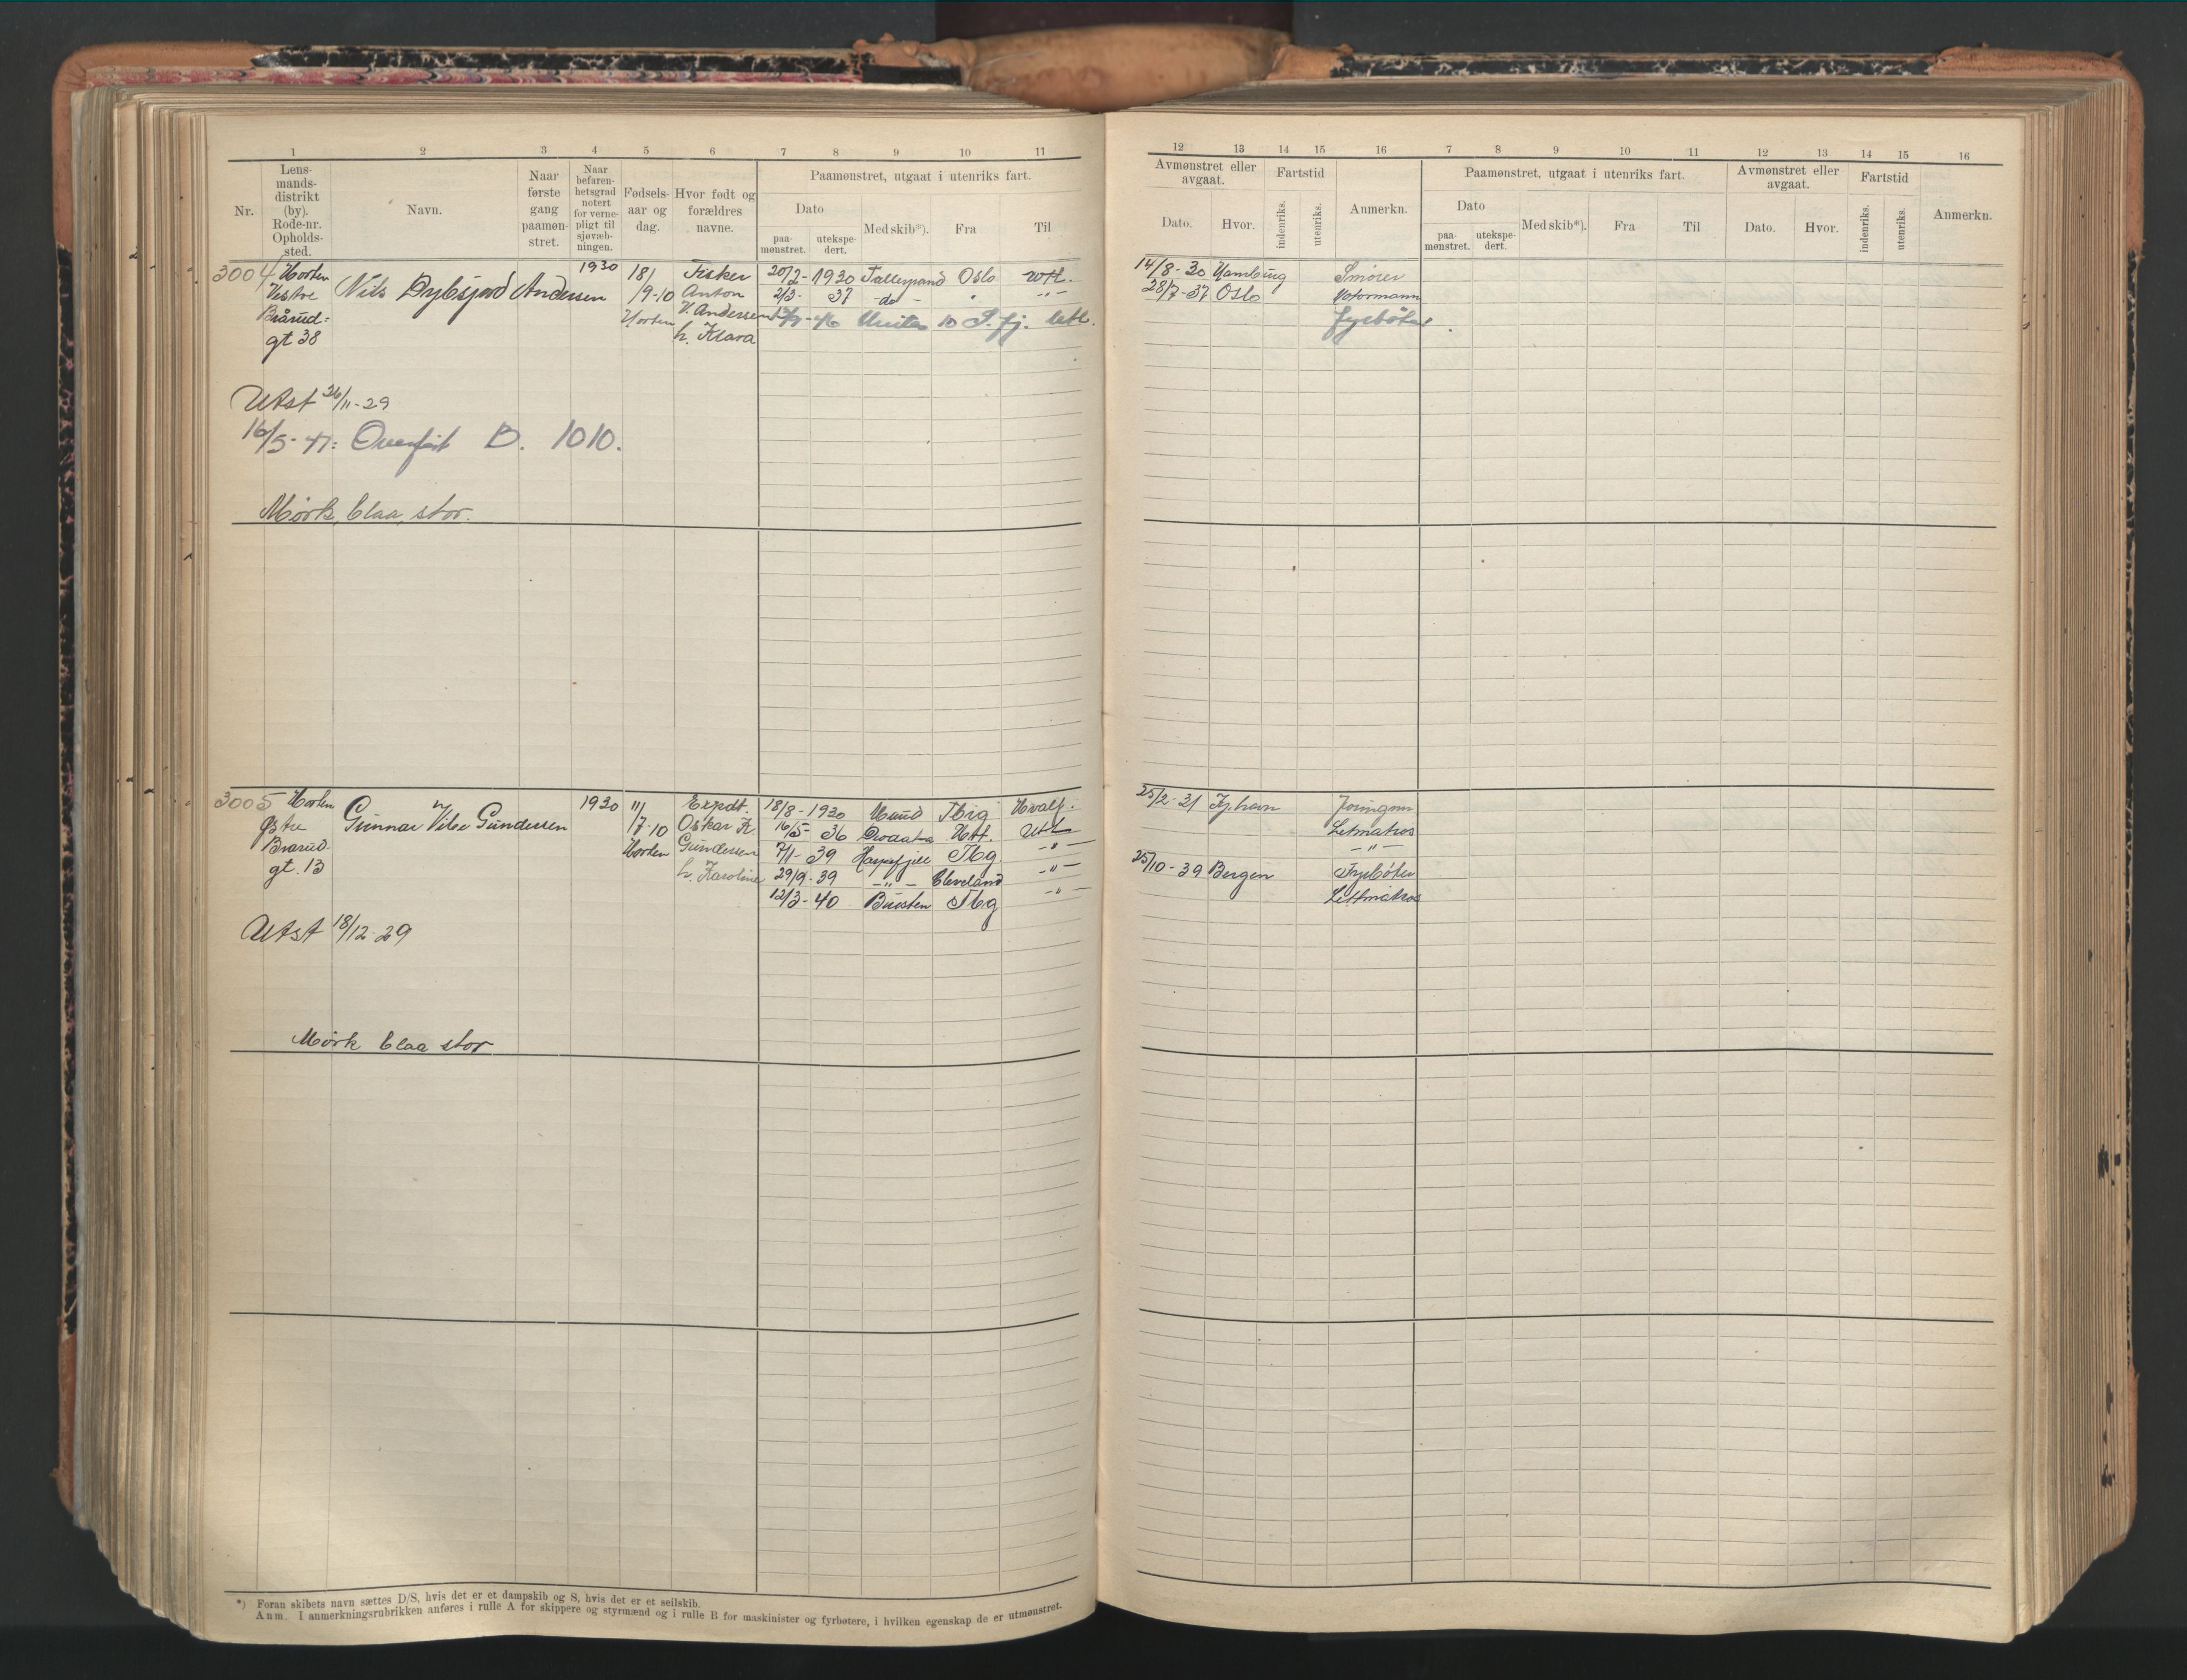 1 2 3 4 5 6 7 8 9 10 11
Nr.
Lens-
mands-
distrikt
(by).
Rode-nr.
Opholds-
sted.
Navn.
Naar
første
gang
paamøn-
stret.
Naar
befaren-
hetsgrad
notert
for verne-
pligt til
sjøvæb-
ningen.
Fødsels-
aar og
dag.
Hvor født og
forældres
navne.
Paamønstret, utgaat i utenriks fart.
Dato
paa-
mønstret.
utekspe-
dert.
Med skib*).
Fra
Til
3004 Horten
Vestre
Brårud-
gt 38
Nils Dybsjord Andersen
1930
18/
/9-10
Horten
Fisker
Anton
V. Andersen
h. Klara
20/2- 1930 Talleyrand Oslo Utl.
2/3- 37 -do- " -"-
-46 S. fj. Utl.
Utst 26/11-29
16/5-47: Overført B. 1010.
Mørk, blaa, stor.
3005 Horten
Østre
Brarud-
gt. 13
Gunnar Vibe Gundersen
1930
11/
/7-10
Horten
Expdt.
Oskar K.
Gundersen
h. Karoline
18/8-1930 Tbig Hvalf.
16/5- 36 Utl
7/1- 39 Tbg -"-
29/9-39 -"- Cleveland -"-
12/3-40 Tbg -"-
Utst 18/12-29
Mørk blaa stor
*) Foran skibets navn sættes D/S, hvis det er et dampskib og S, hvis det er et seilskib.
Anm. I anmerkningsrubrikken anføres i rulle A for skippere og styrmænd og i rulle B for maskinister og fyrbøtere, i hvilken egenskap de er utmønstret.
12 13 14 15 16 7 8 9 10 11 12 13 14 15 16
Avmønstret eller
avgaat.
Dato.
Hvor.
Fartstid
indenriks.
utenriks.
Anmerkn.
Paamønstret, utgaat i utenriks fart.
Dato
paa-
mønstret.
utekspe-
dert.
Med skib*).
Fra
Til
Avmønstret eller
avgaat.
Dato.
Hvor.
Fartstid
indenriks.
utenriks.
Anmerkn.
14/8-30 Hamburg Smører
28/7-37 Oslo Motormann
fyrbøter
25/2-31 Kj.havn Jungm
Letmatros
-"-
25/10-39 Bergen Fyrbøter
Lettmatros